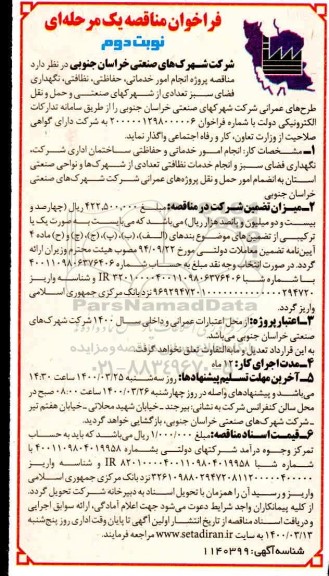 فراخوان مناقصه یک مرحله‌ای
نوبت دوم
شرکت شهرک‌های صنعتی خراسان جنوبی در نظر دارد
مناقصه پروژه انجام امور خدماتی، حفاظتی، نظافتی، نگهداری
فضای سبز تعدادی از شهرکهای صنعتی و حمل و نقل
طرح‌های عمرانی شرکت شهرکهای صنعتی خراسان جنوبی را از طریق سامانه تدارکات
الکترونیکی دولت با شماره فراخوان ۲۰۰۰۰۰۱۲۹۸۰۰۰۰۰۶ به شرکت دارای گواهی
صلاحیت از وزارت تعاون، کار و رفاه اجتماعی واگذار نماید.
۱ـ مشخصات کار: انجام امور خدماتی و حفاظتی ساختمان اداری شرکت،
نگهداری فضای سبز و انجام خدمات نظافتی تعدادی از شهرک‌ها و نواحی صنعتی
استان به انضمام امور حمل و نقل پروژه‌های عمرانی شرکت شهرک‌های صنعتی
خراسان جنوبی
۲ـ میزان تضمین شرکت در مناقصه: مبلغ ۴۲۲,۵۰۰,۰۰۰ ریال (چهارصد و
بیست و دو میلیون و پانصد هزار ریال) می‌باشد که می‌بایست به صورت یک یا
ترکیبی از تضمین‌های موضوع بندهای (الف)، (ب)، (پ)، (ج)، (چ) و (ح) ماده ۴
آیین‌نامه تضمین معاملات دولتی مورخ ۹۴/۰۹/۲۲ مصوب هیئت محترم وزیران ارائه
گردد. در صورت انتخاب وجه نقد مبلغ به حساب شماره ۴۰۰۱۱۰۹۸۰۶۳۷۶۴۰۶
با شماره شبا و شناسه واریز
نزد بانک مرکزی جمهوری اسلامی
واریز گردد.
۳ـ اعتبار پروژه: از محل اعتبارات عمرانی و داخلی سال ۱۴۰۰ شرکت شهرک‌های
صنعتی خراسان جنوبی می‌باشد.
به این قرارداد تعدیل و مابه‌التفاوت تعلق نخواهد گرفت.
۴ـ مدت اجرای کار: ۱۲ ماه
۵ـ آخرین مهلت تسلیم پیشنهادها: روز سه‌شنبه ۱۴۰۰/۰۳/۲۵ ساعت ۱۴:۳۰
می‌باشد و پیشنهادهای واصله در روز چهارشنبه ۱۴۰۰/۰۳/۲۶ ساعت ۰۸:۰۰ صبح در
محل سالن کنفرانس شرکت به نشانی: بیرجند ـ خیابان شهید محلاتی ـ خیابان هفتم تیر
ـ شرکت شهرک‌های صنعتی خراسان جنوبی، بازگشایی خواهد گردید.
۶ـ قیمت اسناد مناقصه: مبلغ ۱/۰۰۰/۰۰۰ ریال می‌باشد که باید به حساب
تمرکز وجوه درآمد شرکتهای دولتی بشماره ۴۰۰۱۱۰۹۸۰۴۰۱۹۹۵۸ با
شماره شبا و شناسه واریز
نزد بانک مرکزی جمهوری اسلامی
واریز و رسید آن را همزمان با تحویل اسناد به دبیرخانه شرکت تحویل گردد.
از کلیه پیمانکاران واجد شرایط دعوت می‌شود جهت اعلام آمادگی، ارائه سوابق اجرایی
و دریافت اسناد مناقصه از تاریخ انتشار اولین آگهی تا پایان وقت اداری روز پنج‌شنبه
۱۴۰۰/۰۳/۱۳ به سایت www.setadiran.ir مراجعه فرمایند.
شناسه آگهی: ۱۱۴۰۳۹۹
ParsNamadData
۰۲۱-۸۸۳۴۹۶۷۰